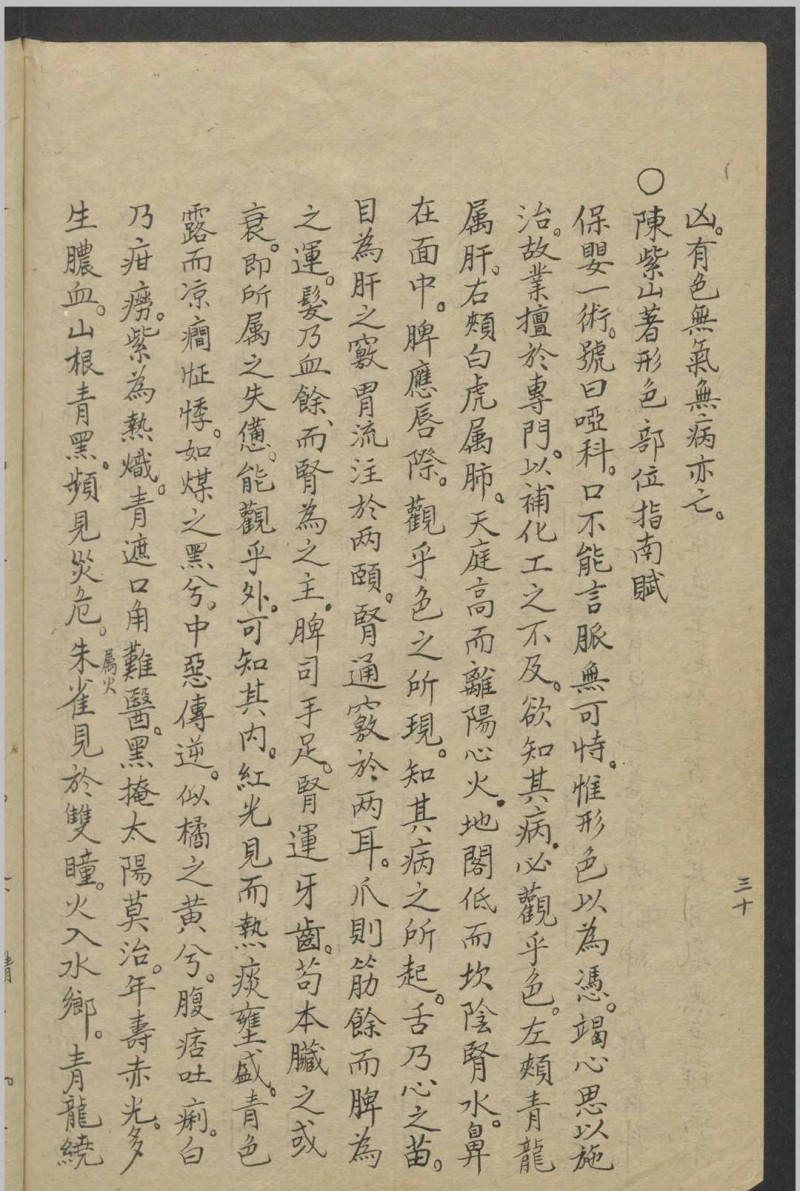 凶。有色無氣無病亦亡。
〇陳紫山著形色部位指南賦
保嬰一術。號曰啞科。口不能言脈無可恃。惟形色以為憑。竭心思以施
治。故業擅於專門。以補化工之不及。欲知其病。必觀乎色。左頰青龍
属肝。右頰白虎属肺。天庭高而離陽心火。地閣低而坎陰腎水。鼻
在面中。脾應唇際。觀乎色之所現。知其病之所起。舌乃心之苗。
目為肝之竅胃流注於两頤。腎通竅於两耳。爪則筋餘而脾為
之運。髮乃血餘、而腎為之主。脾司手足。腎運牙齒。苟本臟之或
衰。即所属之失僁。能觀乎外。可知其内。紅光見而熱痰壅盛。青色
露而凉癎怔悸。如煤之黑兮。中惡傳逆。似橘之黃兮。腹痞吐痢。白
乃疳癆。紫為熱熾。青遮口角難醫。黑掩太陽莫治。年壽赤光。多
生膿血。山根青黑。頻見災危。朱雀属火見於雙瞳。火入水鄉。青龍繞
三十